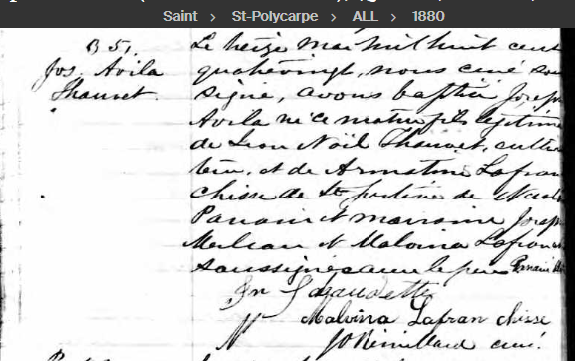 Saint > St-Polycarpe > ALL > 1880
B 51.
Jos. Avila
Thauvet.
Le treize mai mil huit cent
quatrevingt, nous curé sous
signé, avons baptisé Joseph
Avila né ce matin fils légitime
de Léon Noël Thauvet, cultiva
teur, et de Armstine Lafran
chise de Ste Justine de
Parrain et marraine Joseph
et Malvina Lafranch
soussignés avec le père
Malvina Lafran chise
curé.